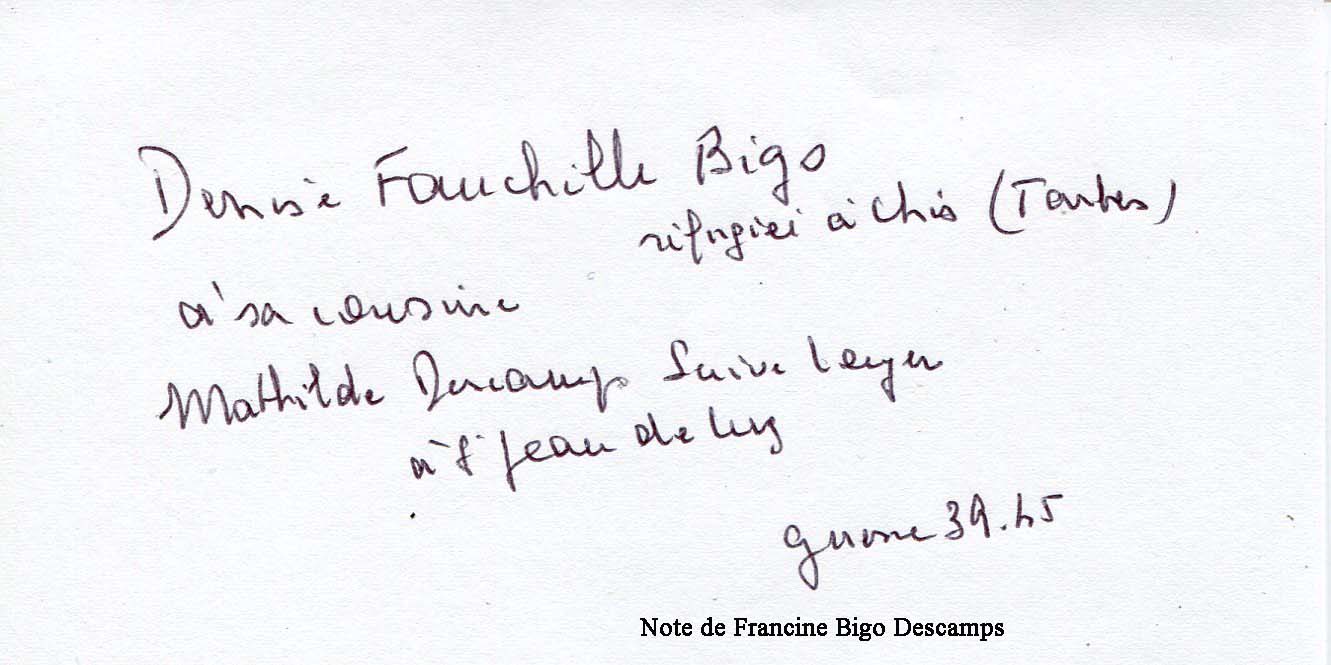 Denise Fauchille Bigo
réfugiée à Chis (Tarbes)
à sa cousine
Mathilde Descamps Saint Leger
à St Jean de Luz
guerre 39.45
Note de Francine Bigo Descamps